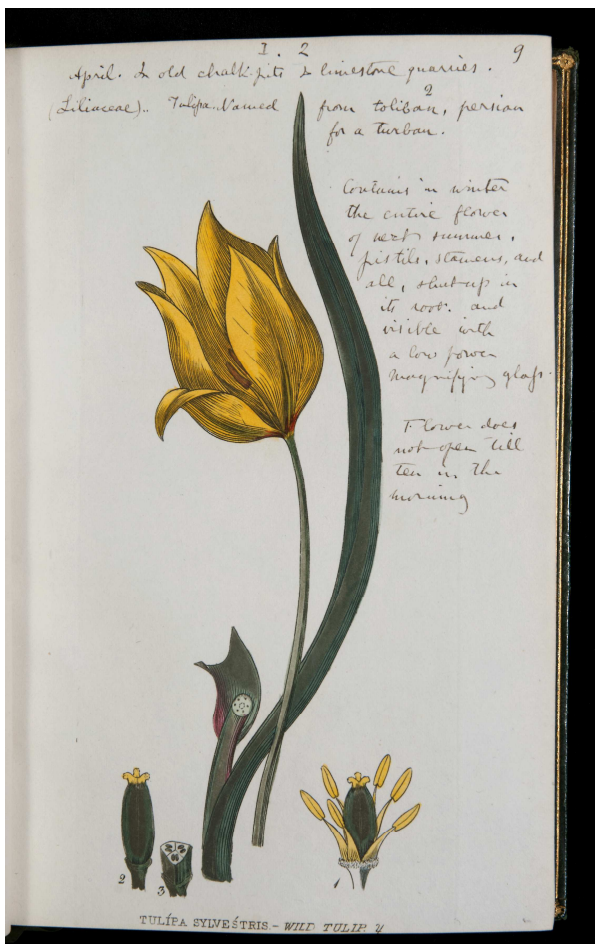 I. 2
9
April. In old chalk-pits & limestone quarries.
(Liliaceae).. Tulipa. Named from toliban, persian
?
for a turban.
Contains in winter
the entire flower
of next summer,
pistils, stamens, and
all, shut up in
its root. and
visible with
a low power
magnifying glass.
Flower does
not open till
ten in the
morning
2
3
1
TULÍPA SYLVEŚTRIS.- WILD TULIP.